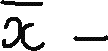 x̄ –